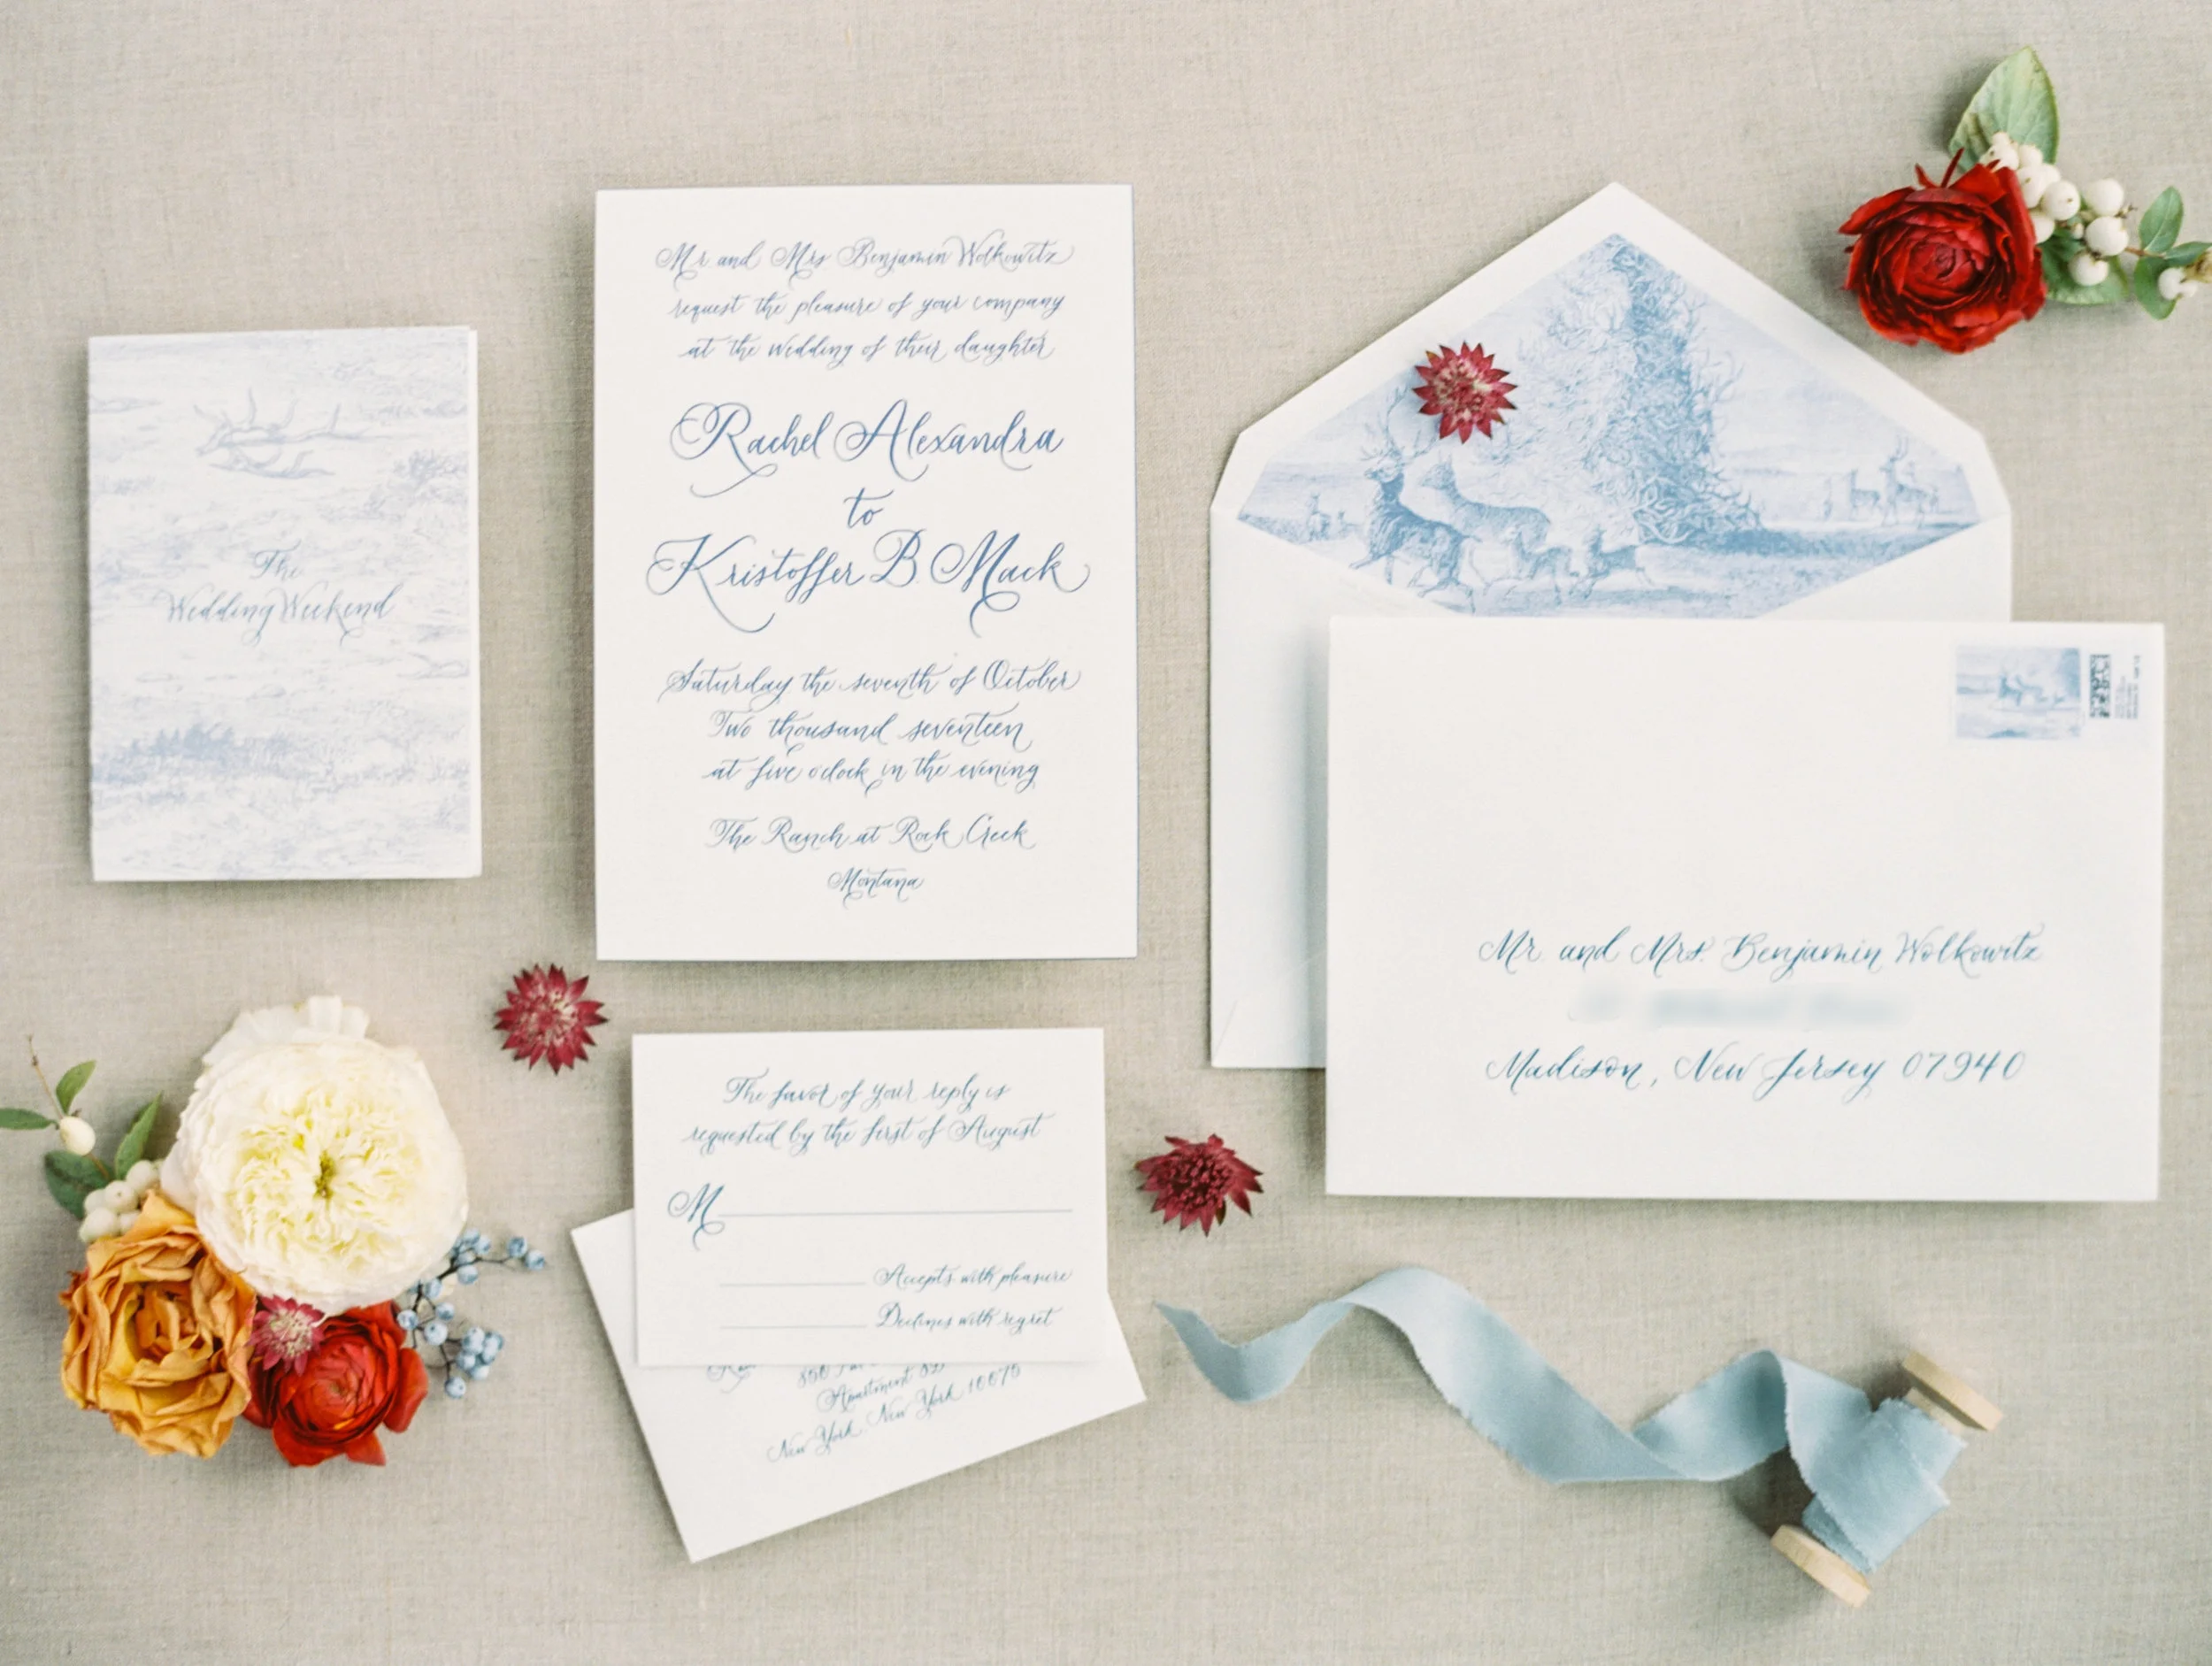 The
Wedding Weekend
Mr. and Mrs Benjamin Wolkowitz
request the pleasure of your company
at the wedding of their daughter
Rachel Alexandra
to
Kristoffer B. Mack
Saturday the seventh of October
Two thousand seventeen
at five o'clock in the evening
The Ranch at Rock Creek
Montana
Mr. and Mrs. Benjamin Wolkowitz
Madison, New Jersey 07940
The favor of your reply is
requested by the first of August
M
Accepts with pleasure
Declines with regret
Apartment 8D
New York, New York 10075